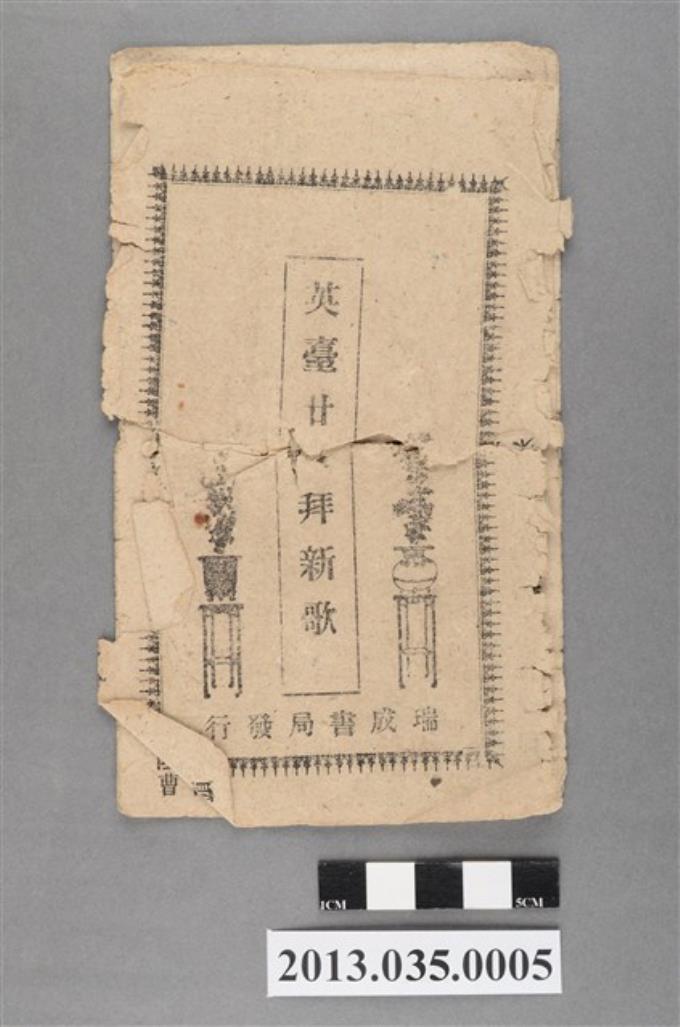 英臺廿拜新歌
瑞成書局發行
曹
1CM 5CM
2013.035.0005